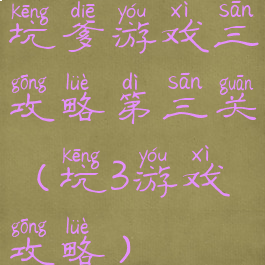 kēng diē yóu xì sān
坑爹游戏三
gōng lüè dì sān guān
攻略第三关
kēng yóu xì
(坑3游戏
gōng lüè
攻略)